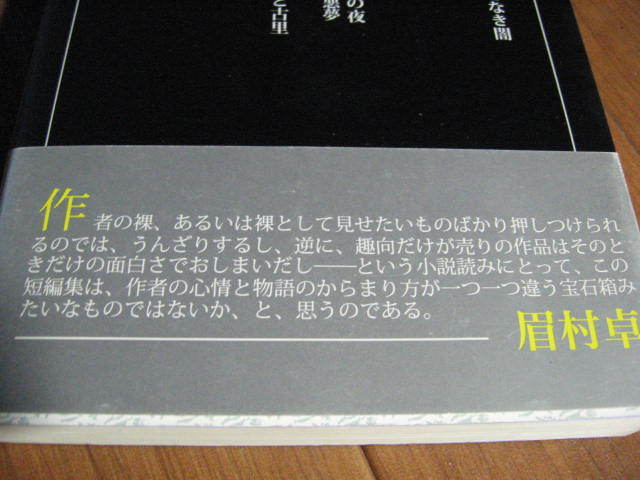 なき闇
の夜
悪夢
と古里
作者の裸、あるいは裸として見せたいものばかり押しつけられ
るのでは、うんざりするし、逆に、趣向だけが売りの作品はそのと
きだけの面白さでおしまいだし――という小説読みにとって、この
短編集は、作者の心情と物語のからまり方が一つ一つ違う宝石箱み
たいなものではないか、と、思うのである。
眉村卓